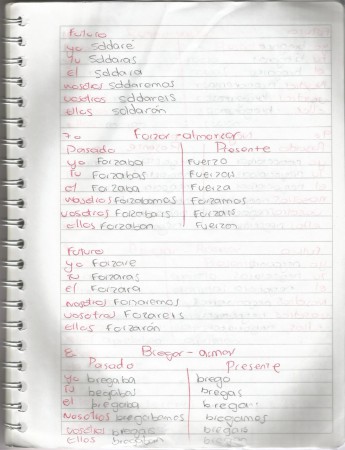 Futuro
yo Soldaré
tu Soldaras
el Soldara
nosotros soldaremos
vosotros soldareis
ellos soldarán
7.- Forzar - almorzar
Pasado Presente
yo Forzaba Fuerzo
tu Forzabas Fuerzas
el Forzaba Fuerza
nosotros Forzabamos Forzamos
vosotros Forzabais Forzais
ellos Forzaban Fuerzan
Futuro
yo Forzare
tu Forzaras
el Forzara
nosotros Forzaremos
vosotros Forzareis
ellos Forzarán
8.- Bregar - amar
Pasado Presente
yo bregaba brego
tu begabas bregas
el bregaba brega
nosotros bregabamos bregamos
vosotros bregais
ellos bregaban bregan